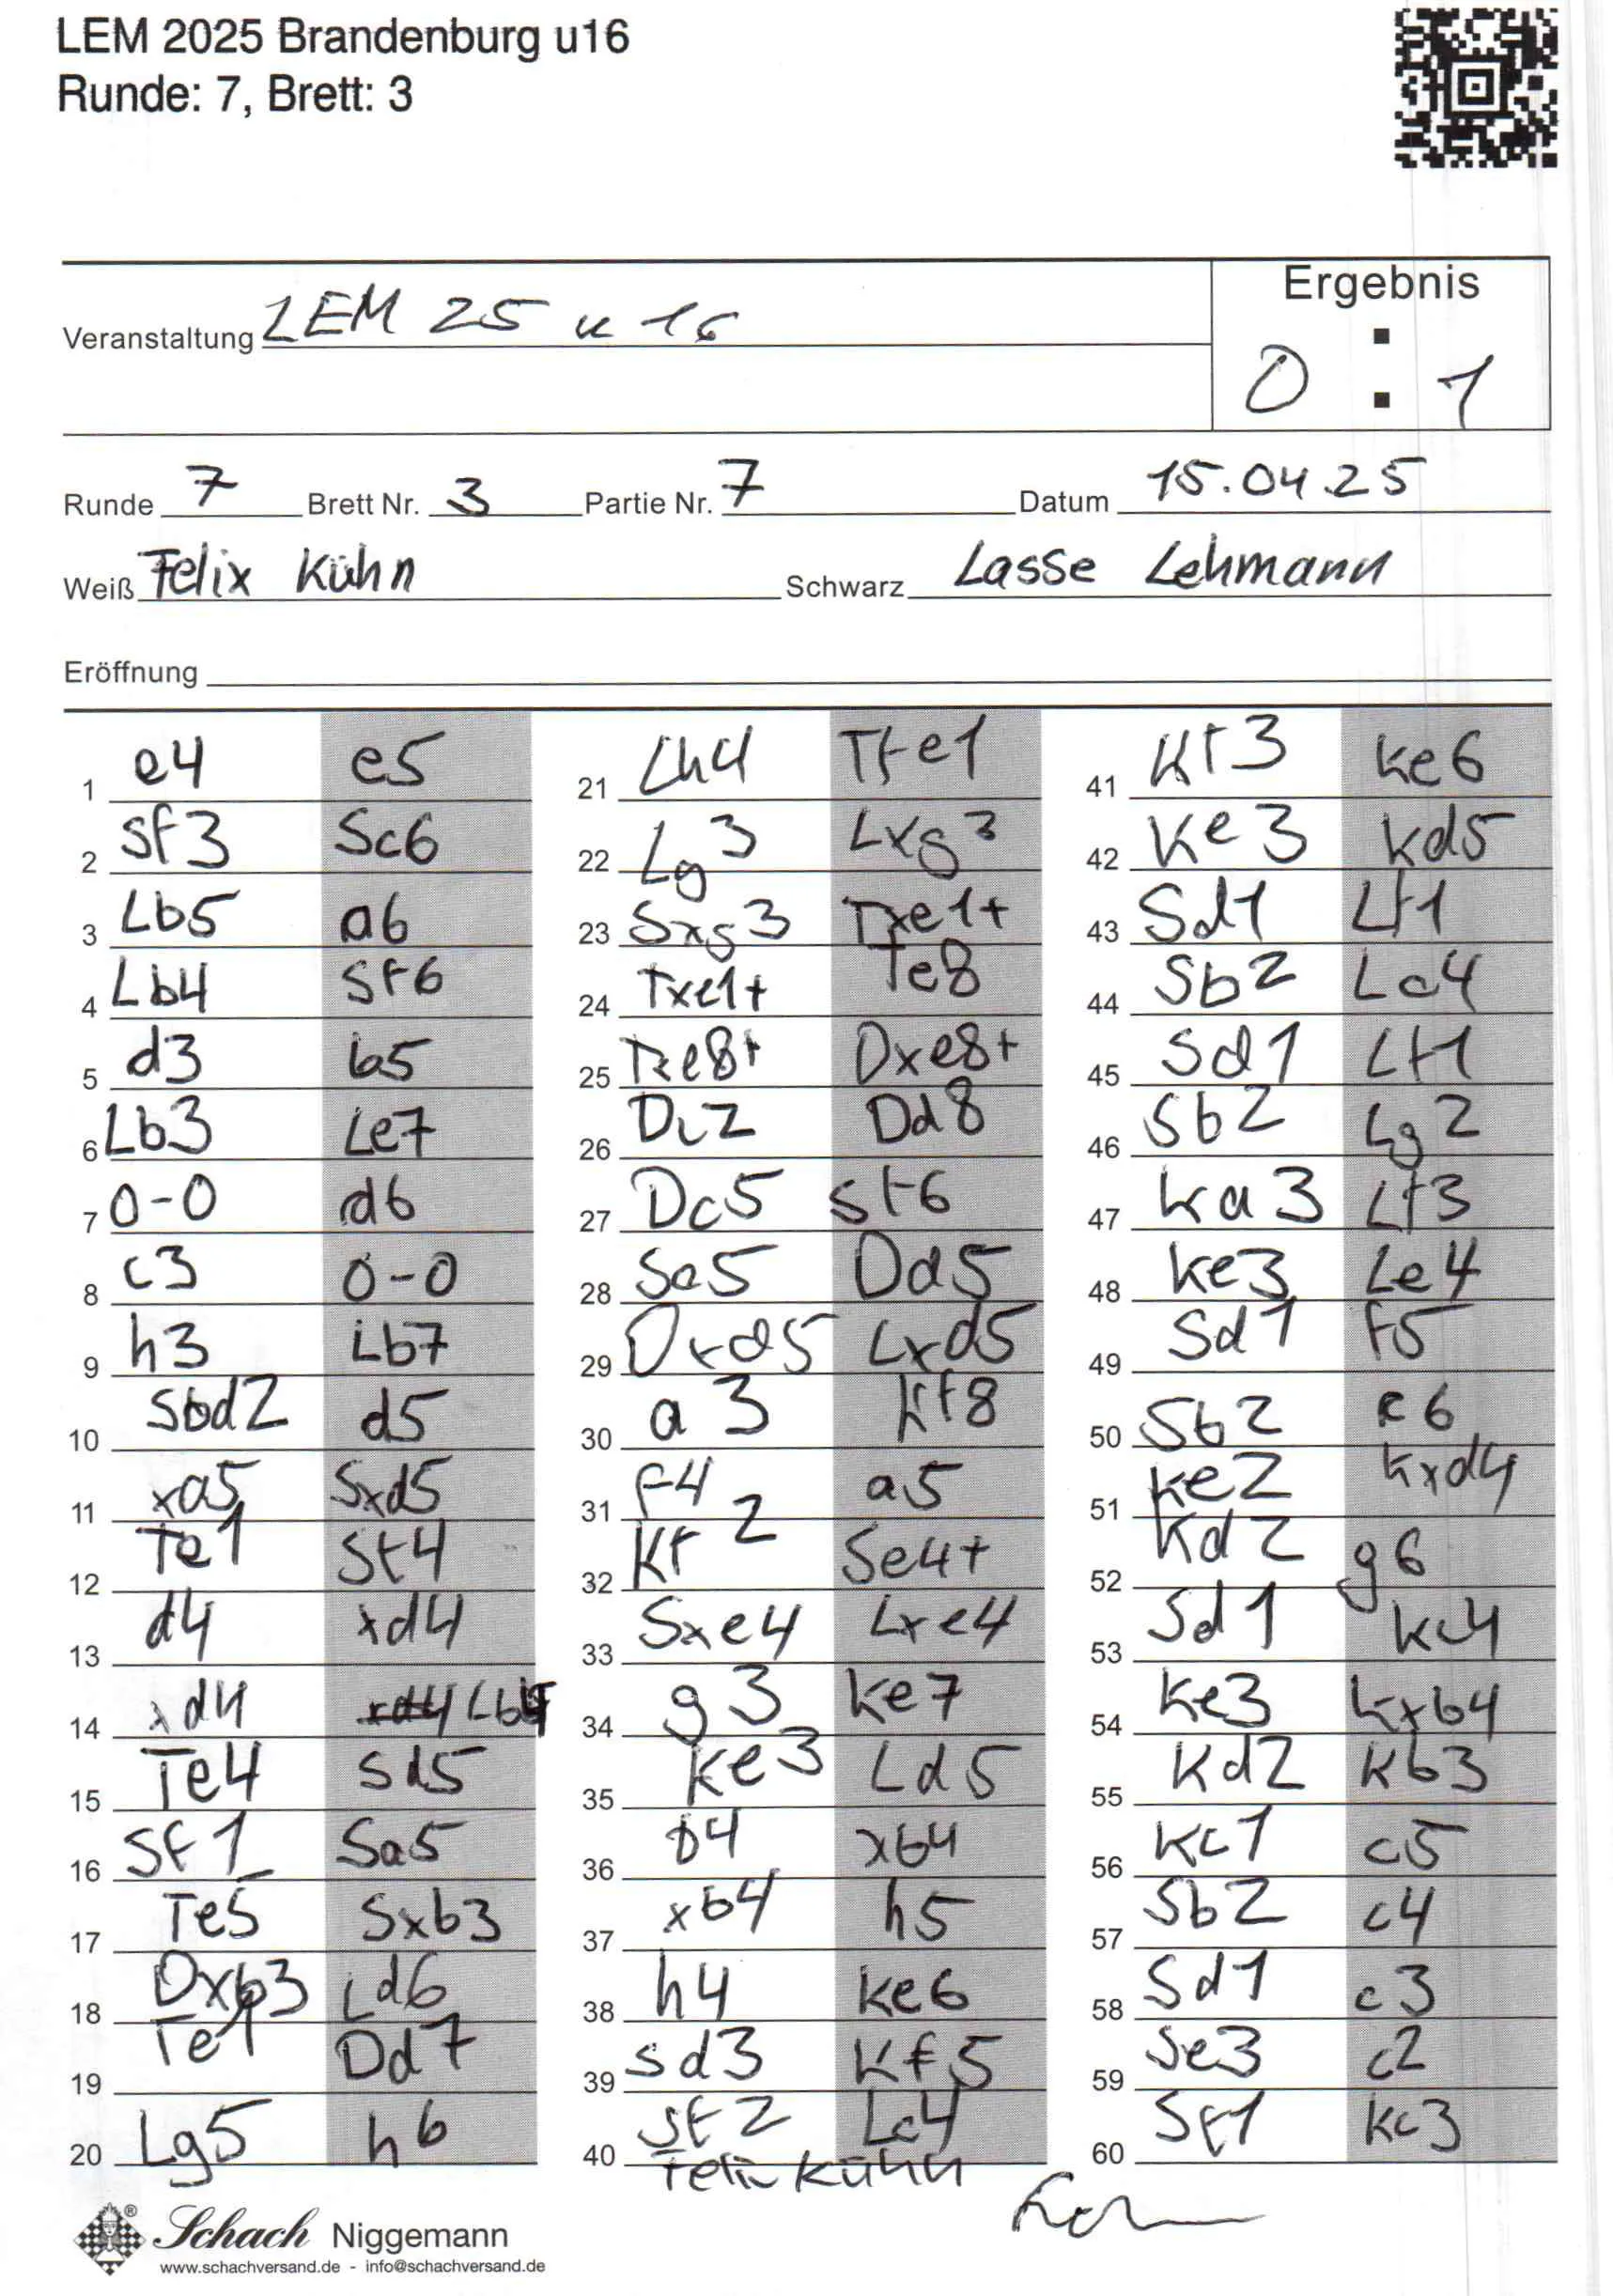 LEM 2025 Brandenburg u16
Runde: 7, Brett: 3
Ergebnis
Veranstaltung LEM 25 u 16
0 : 1
Runde 7 Brett Nr. 3 Partie Nr. 7 Datum 15.04.25
Weiß Felix Kühn Schwarz Lasse Lehmann
Eröffnung
1 e4 e5
2 Sf3 Sc6
3 Lb5 a6
4 Lb4 Sf6
5 d3 b5
6 Lb3 Le7
7 0-0 d6
8 c3 0-0
9 h3 Lb7
10 Sbd2 d5
11 xd5 Sxd5
12 Te1 Sf4
13 d4 xd4
14 xd4 Lb4
15 Te4 Sd5
16 Sf1 Sa5
17 Te5 Sxb3
18 Dxb3 Ld6
19 Te1 Dd7
20 Lg5 h6
21 Lh4 Tfe1
22 Lg3 Lxg3
23 Sxg3 Txe1+
24 Txe1+ Te8
25 Txe8+ Dxe8+
26 Dc2 Dd8
27 Dc5 Sf6
28 Se5 Dd5
29 Dxd5 Lxd5
30 a3 Kf8
31 f4 a5
32 Kf2 Se4+
33 Sxe4 Lxe4
34 g3 Ke7
35 Ke3 Ld5
36 b4 xb4
37 xb4 h5
38 h4 Ke6
39 Sd3 Kf5
40 Sf2 Lc4
41 Kf3 Ke6
42 Ke3 Kd5
43 Sd1 Lf1
44 Sb2 Lc4
45 Sd1 Lf1
46 Sb2 Lg2
47 Ka3 Lf3
48 Ke3 Le4
49 Sd1 f5
50 Sb2 c6
51 Ke2 Kxd4
52 Kd2 g6
53 Sd1 Kc4
54 Ke3 Kxb4
55 Kd2 Kb3
56 Kc1 c5
57 Sb2 c4
58 Sd1 c3
59 Se3 c2
60 Sf1 Kc3
Felix Kühn
Schach Niggemann
www.schachversand.de - info@schachversand.de